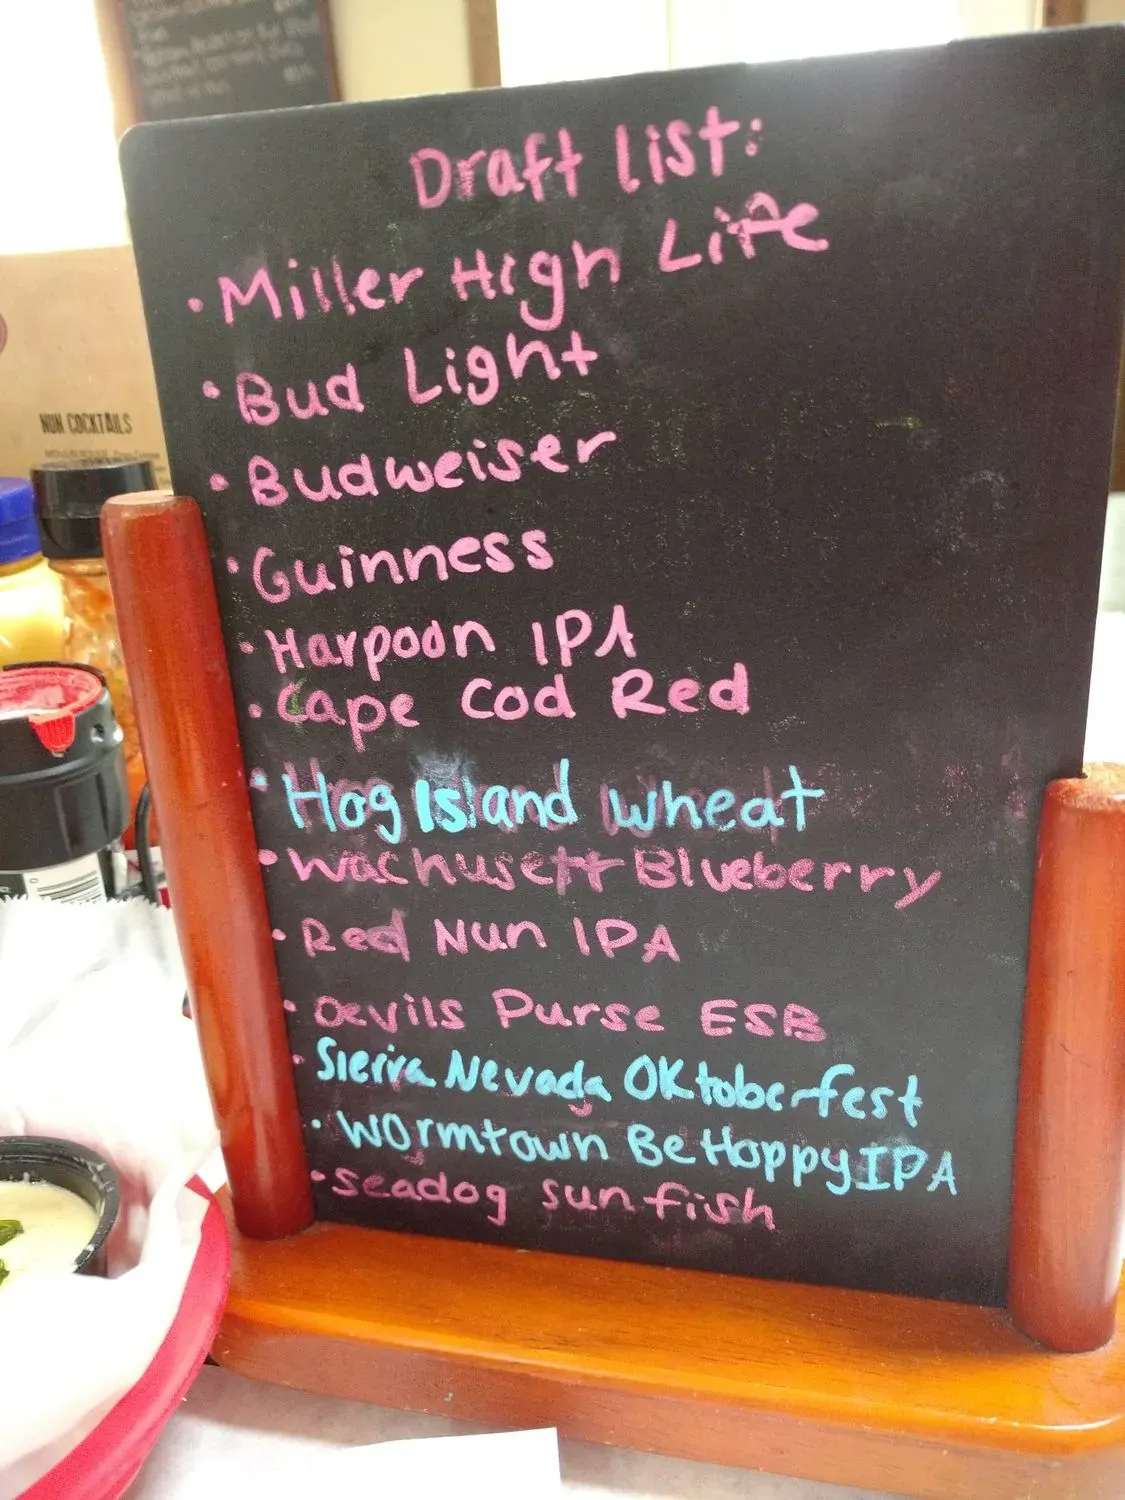 Draft list:
• Miller High Life
• Bud Light
• Budweiser
• Guinness
• Harpoon IPA
• Cape Cod Red
• Hog Island Wheat
• Wachusett Blueberry
• Red Nun IPA
• Devils Purse ESB
• Sierra Nevada OKtoberfest
• Wormtown Be Hoppy IPA
• seadog sunfish
NUN COCKTAILS